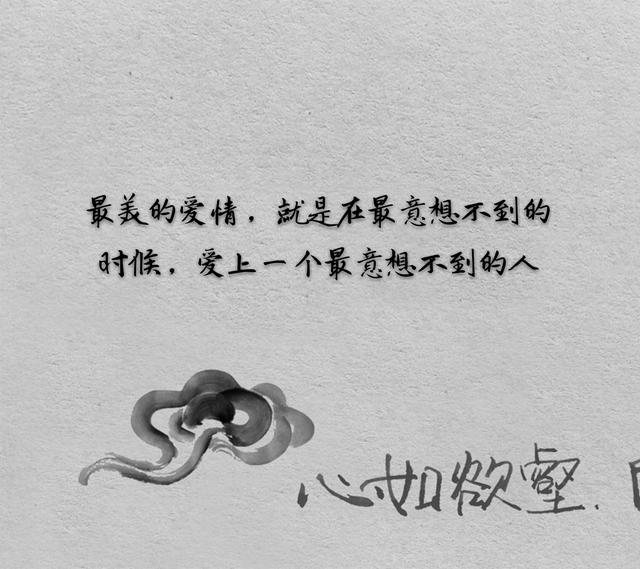 最美的爱情，就是在最意想不到的
时候，爱上一个最意想不到的人
心如欲壑.